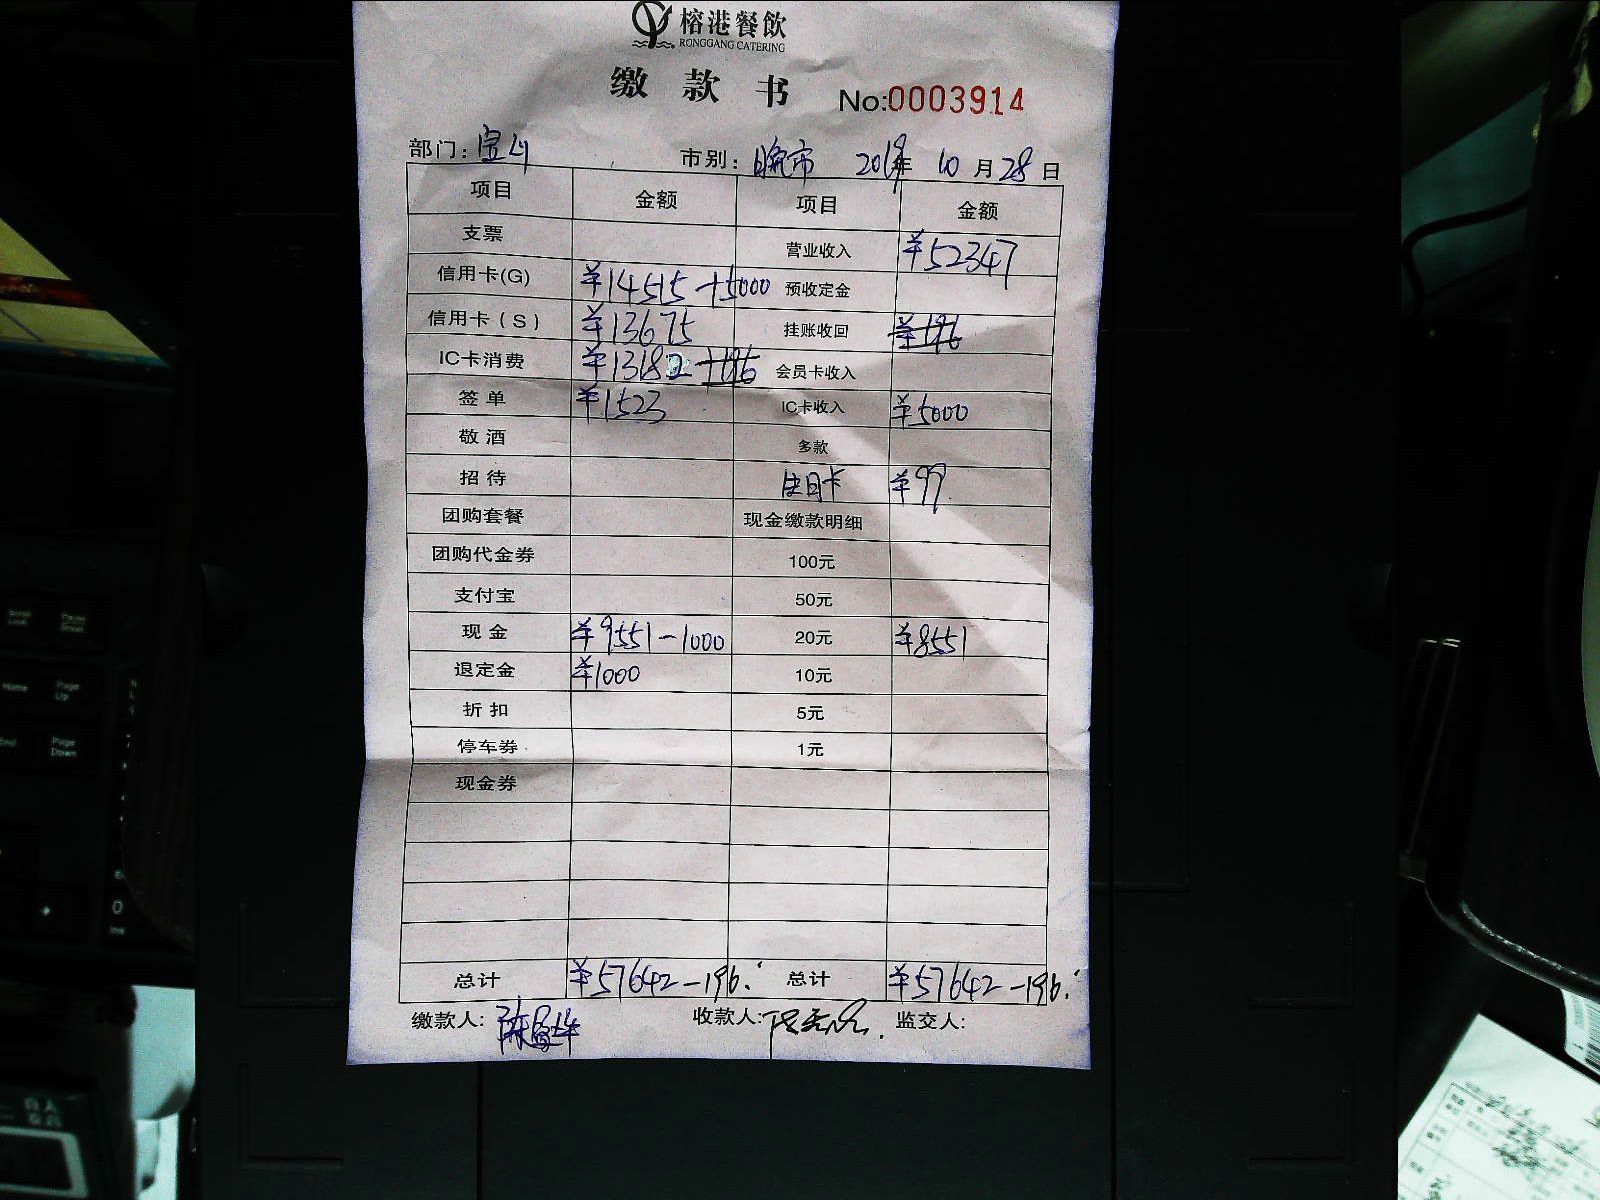 榕港餐飲
RONGGANG CATERING
缴款书 No:0003914
部门:宝山 市别:晚市 2018年 10月28日
项目 金额 项目 金额
支票 营业收入 ¥52347
信用卡(G) ¥14515+5000 预收定金
信用卡(S) ¥13675 挂账收回 ¥196
IC卡消费 ¥13182+196 会员卡收入
签单 ¥1523 IC卡收入 ¥5000
敬酒 多款
招待 生日卡 ¥99
团购套餐 现金缴款明细
团购代金券 100元
支付宝 50元
现金 ¥9551-1000 20元 ¥8551
退定金 ¥1000 10元
折扣 5元
停车券 1元
现金券
总计 ¥57642-196. 总计 ¥57642-196.
缴款人: 收款人: 监交人:
Home
Page Up
End
Page Down